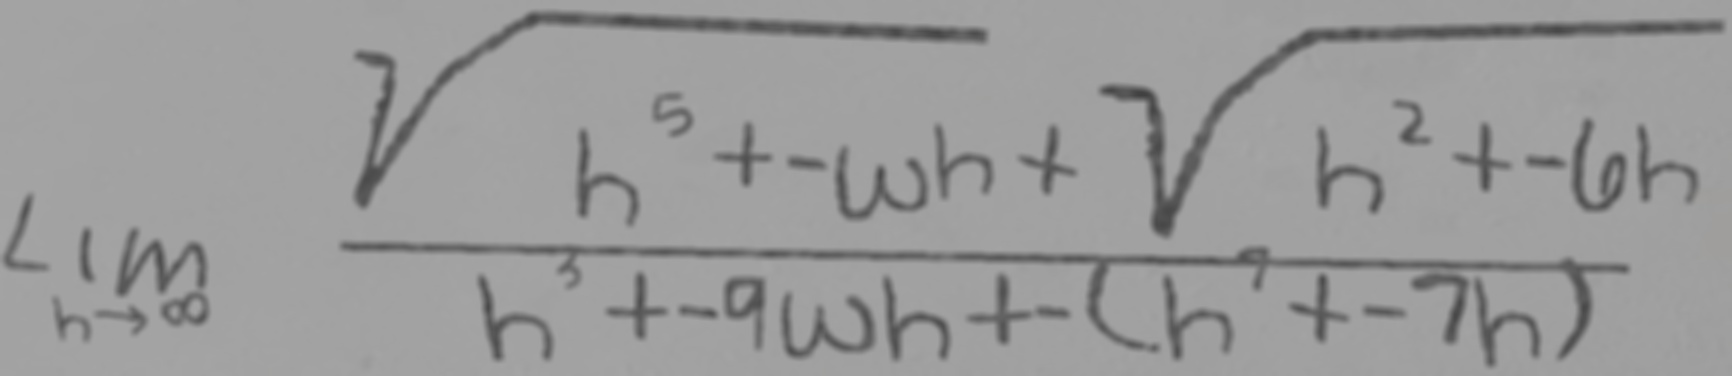 \lim_{h \to \infty} \frac{\sqrt{h^5 + -wh} + \sqrt{h^2 + -6h}}{h^3 + -9wh + -(h^7 + -7h)}